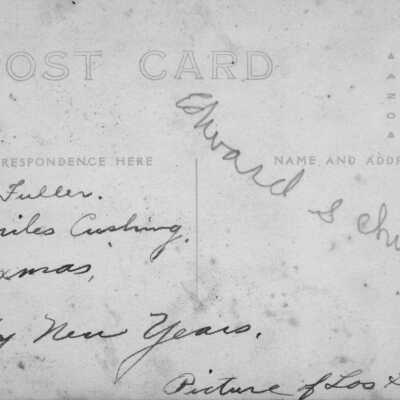 POST CARD
RESPONDENCE HERE
NAME AND ADDR
Edward Sch
Fuller.
Cushing.
xmas,
y New Years.
Picture of Los